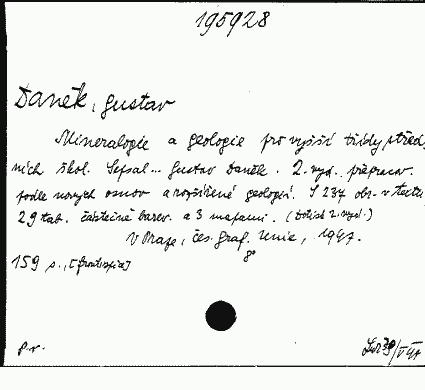 195928
Daněk, Gustav
Mineralogie a geologie pro vyšší třídy střed-
ních škol. Sepsal... Gustav Daněk. 2. vyd. přepracov.
podle nových osnov a rozšířené geologií. S 237 obr. v textu
29 tab. částečně barev. a 3 mapami. (Dotisk 2. vyd.)
V Praze, Čes. graf. Unie, 1947.
8°
159 s., [frontispis]
p.r.